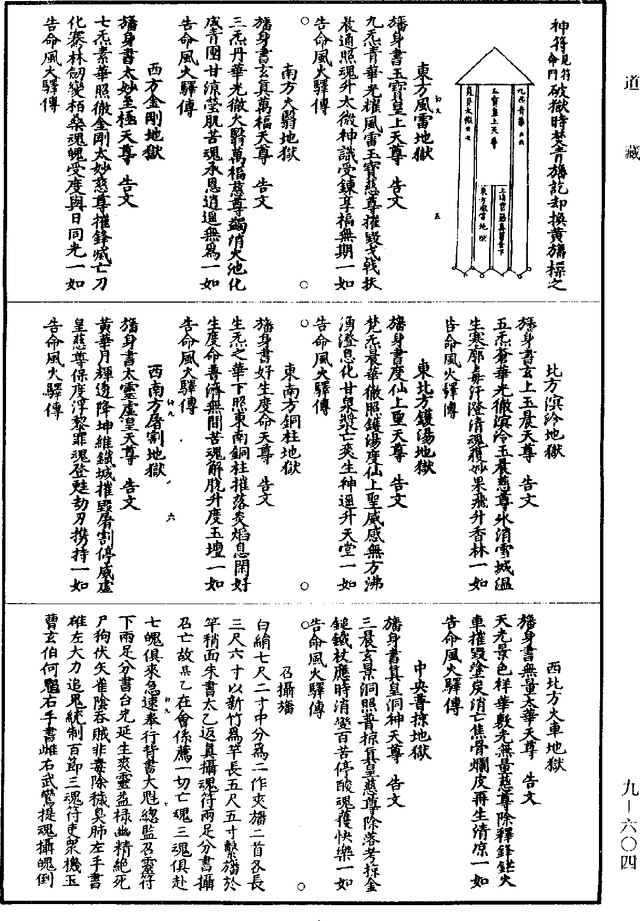 道藏
神符見符命門破獄時焚青旛訖却換黃旛標之
東方風雷地獄
旛身書玉寶皇上天尊 告文
九炁青華光耀風雷玉寶慈尊摧毀戈戟扶
晨通照魂升太微神識受鍊享福無期一如
告命風火驛傳
南方火翳地獄
旛身書玄真萬福天尊 告文
三炁丹華光徹火翳萬福慈尊蠲消火池化
成青團甘涼瑩肌苦魂承恩逍遙無為一如
告命風火驛傳
西方金剛地獄
旛身書太妙至極天尊 告文
七炁素華照徹金剛太妙慈尊摧鋒滅亡刀
化騫林劒變栢桑魂魄受度與日同光一如
告命風火驛傳
北方溟泠地獄
旛身書玄上玉晨天尊 告文
五炁蒼華光徹溟泠玉晨慈尊氷消雪城溫
生寒廓毒汗澄清魂獲妙果飛升香林一如
告命風火驛傳
東北方鑊湯地獄
旛身書度仙上聖天尊 告文
梵炁晨華徹照鑊湯度仙上聖威感無方沸
湧澄息化甘泉漿亡爽生神逕升天堂一如
告命風火驛傳
東南方銅柱地獄
旛身書好生度命天尊 告文
生炁之華下照東南銅柱摧落炎焰息閑好
生度命普濟無間苦魂解脫升度玉壇一如
告命風火驛傳
西南方屠割地獄
旛身書太靈虛皇天尊 告文
黃華月輝邊降坤維鐵城摧毀屠割停威虛
皇慈尊保度浮黎罪魂登甦劫刃攜持一如
告命風火驛傳
西北方火車地獄
旛身書無量太華天尊 告文
天光景色祥華數光無量慈尊除釋鋒鋩火
車摧毀塗炭消亡焦骨爛皮再生清凉一如
告命風火驛傳
中央普掠地獄
旛身書真皇洞神天尊 告文
三晨玄景洞照普掠真皇慈尊除落考掠金
鎚鐵杖應時消變百苦停酸魂獲快樂一如
告命風火驛傳
召攝旛
白絹七尺二寸中分為二作夾旛二首各長
三尺六寸以新竹為竿長五尺五寸繫旛於
竿稍面朱書太乙返真攝魂符兩足分書攝
召亡故某乙在會係薦一切亡魂三魂俱赴
七魄俱來急速奉行背書大魁總監召靈符
下兩足分書台光延生爽靈益祿幽精絶死
尸狗伏矢雀陰吞賊非毒除穢臭肺左手書
雄左大力追鬼統制百節三魂符吏衆機玉
曹玄伯何𩲃右手書雌右武鸞提魂攝魄倒
九—六〇四